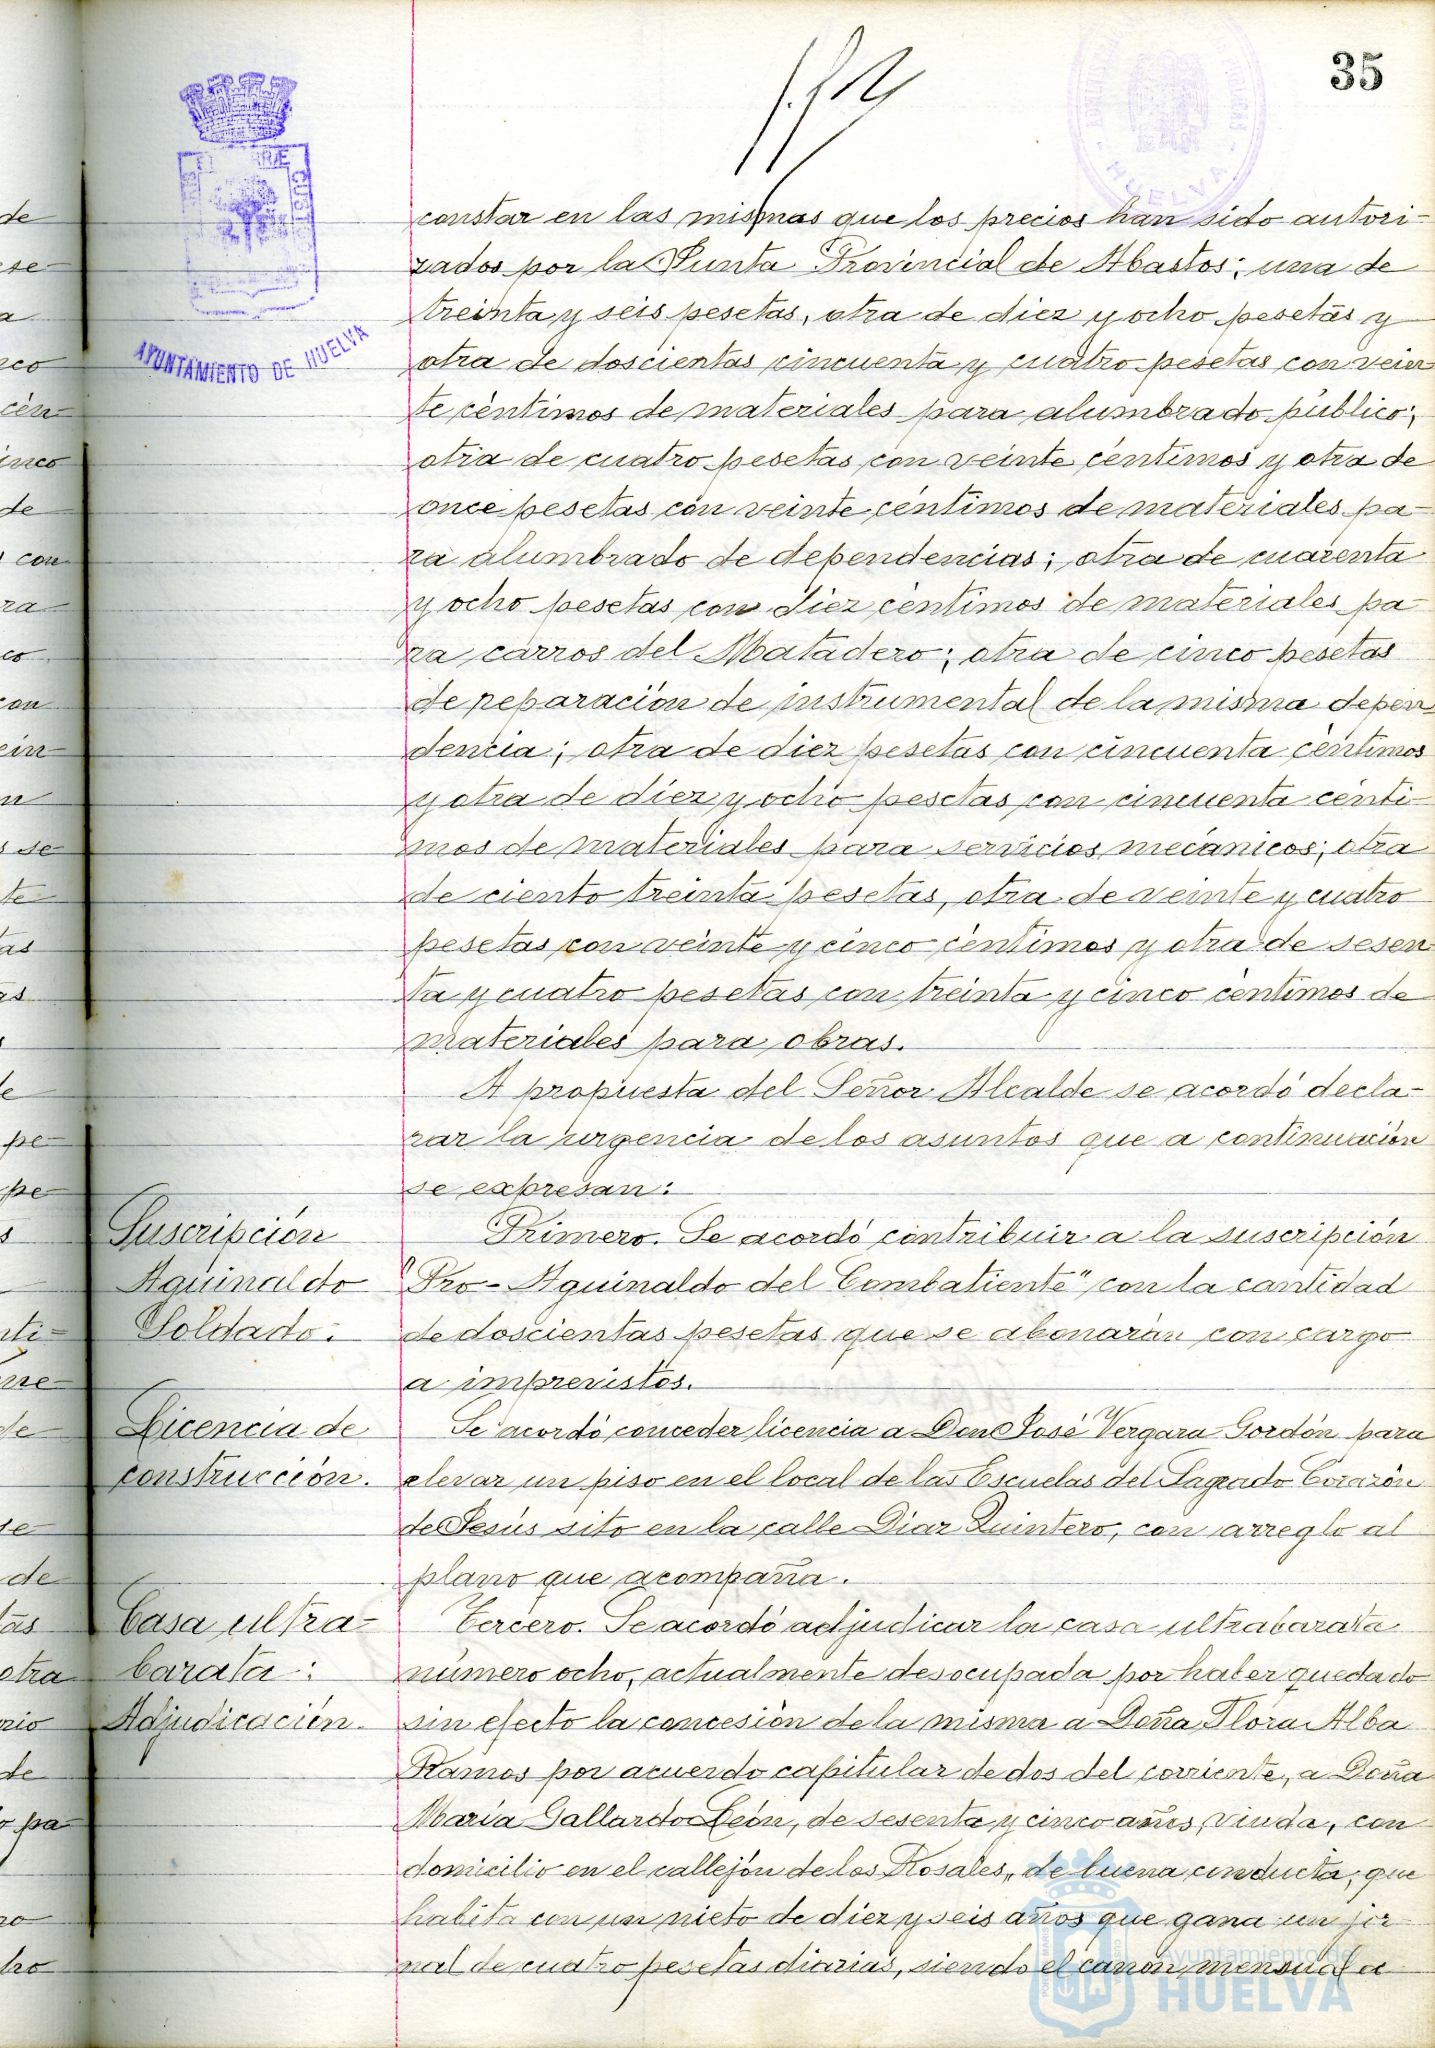 35
AYUNTAMIENTO DE HUELVA
HUELVA
constar en las mismas que los precios han sido autori-
zados por la Junta Provincial de Abastos; una de
treinta y seis pesetas, otra de diez y ocho pesetas y
otra de doscientas cincuenta y cuatro pesetas con vein-
te céntimos de materiales para alumbrado público;
otra de cuatro pesetas con veinte céntimos y otra de
once pesetas con veinte céntimos de materiales pa-
ra alumbrado de dependencias; otra de cuarenta
y ocho pesetas con diez céntimos de materiales pa-
ra carros del Matadero; otra de cinco pesetas
de reparación de instrumental de la misma depen-
dencia; otra de diez pesetas con cincuenta céntimos
y otra de diez y ocho pesetas con cincuenta cénti-
mos de materiales para servicios mecánicos; otra
de ciento treinta pesetas, otra de veinte y cuatro
pesetas con veinte y cinco céntimos y otra de sesen-
ta y cuatro pesetas con treinta y cinco céntimos de
materiales para obras.
A propuesta del Señor Alcalde se acordó decla-
rar la urgencia de los asuntos que a continuación
se expresan:
Suscripción
Aguinaldo
Soldado.
Primero. Se acordó contribuir a la suscripción
"Pro-Aguinaldo del Combatiente" con la cantidad
de doscientas pesetas que se abonarán con cargo
a imprevistos.
Licencia de
construcción.
Se acordó conceder licencia a Don José Vergara Gordón para
elevar un piso en el local de las Escuelas del Sagrado Corazón
de Jesús sito en la calle Diaz Quintero, con arreglo al
plano que acompaña.
Casa ultra-
barata:
Adjudicación.
Tercero. Se acordó adjudicar la casa ultrabarata
número ocho, actualmente desocupada por haber quedado
sin efecto la concesión de la misma a Doña Flora Alba
Ramos por acuerdo capitular de dos del corriente, a Doña
María Gallardo León, de sesenta y cinco años, viuda, con
domicilio en el callejón de los Rosales, de buena conducta, que
habita con un nieto de diez y seis años que gana un jor-
nal de cuatro pesetas diarias, siendo el canon mensual a
Ayuntamiento de
HUELVA